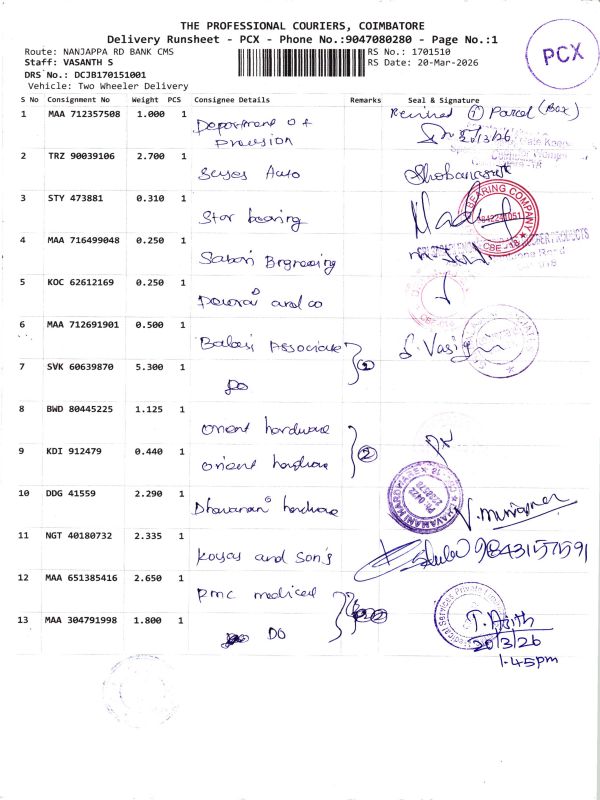 THE PROFESSIONAL COURIERS, COIMBATORE
Delivery Runsheet - PCX - Phone No.:9047080280 - Page No.:1
PCX
Route: NANJAPPA RD BANK CMS
RS No.: 1701510
Staff: VASANTH S
RS Date: 20-Mar-2026
DRS No.: DCJB170151001
Vehicle: Two Wheeler Delivery
S No Consignment No Weight PCS Consignee Details Remarks Seal & Signature
1 MAA 712357508 1.000 1 Department of Received ① Parcel (Box)
2 TRZ 90039106 2.700 1 Auto
3 STY 473881 0.310 1 Star bearing
BEARING COMPANY
CBE - 18
4 MAA 716499048 0.250 1
5 KOC 62612169 0.250 1 and co
6 MAA 712691901 0.500 1 Balaji Associate S. Vasi
7 SVK 60639870 5.300 1 DO ②
8 BWD 80445225 1.125 1 orient hardware
9 KDI 912479 0.440 1 orient hardware ②
10 DDG 41559 2.290 1 hardware
11 NGT 40180732 2.335 1 and Son's 9843157591
12 MAA 651385416 2.650 1 pmc medical
13 MAA 304791998 1.800 1 DO
20/3/26
1.45pm